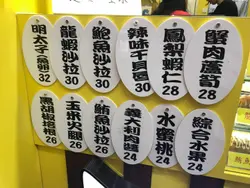 蟹肉蘆筍
28
鳳梨蝦仁
28
辣味干貝唇
30
鮑魚沙拉
30
龍蝦沙拉
30
明太子魚卵
32
綜合水果
24
水蜜桃
24
義大利肉醬
24
鮪魚沙拉
26
玉米火腿
26
黑胡椒培根
26